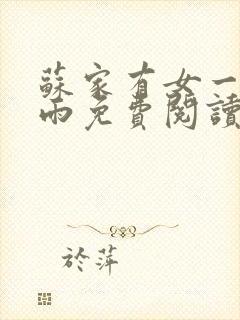 蘇家有女一
雨免費閱讀
於萍